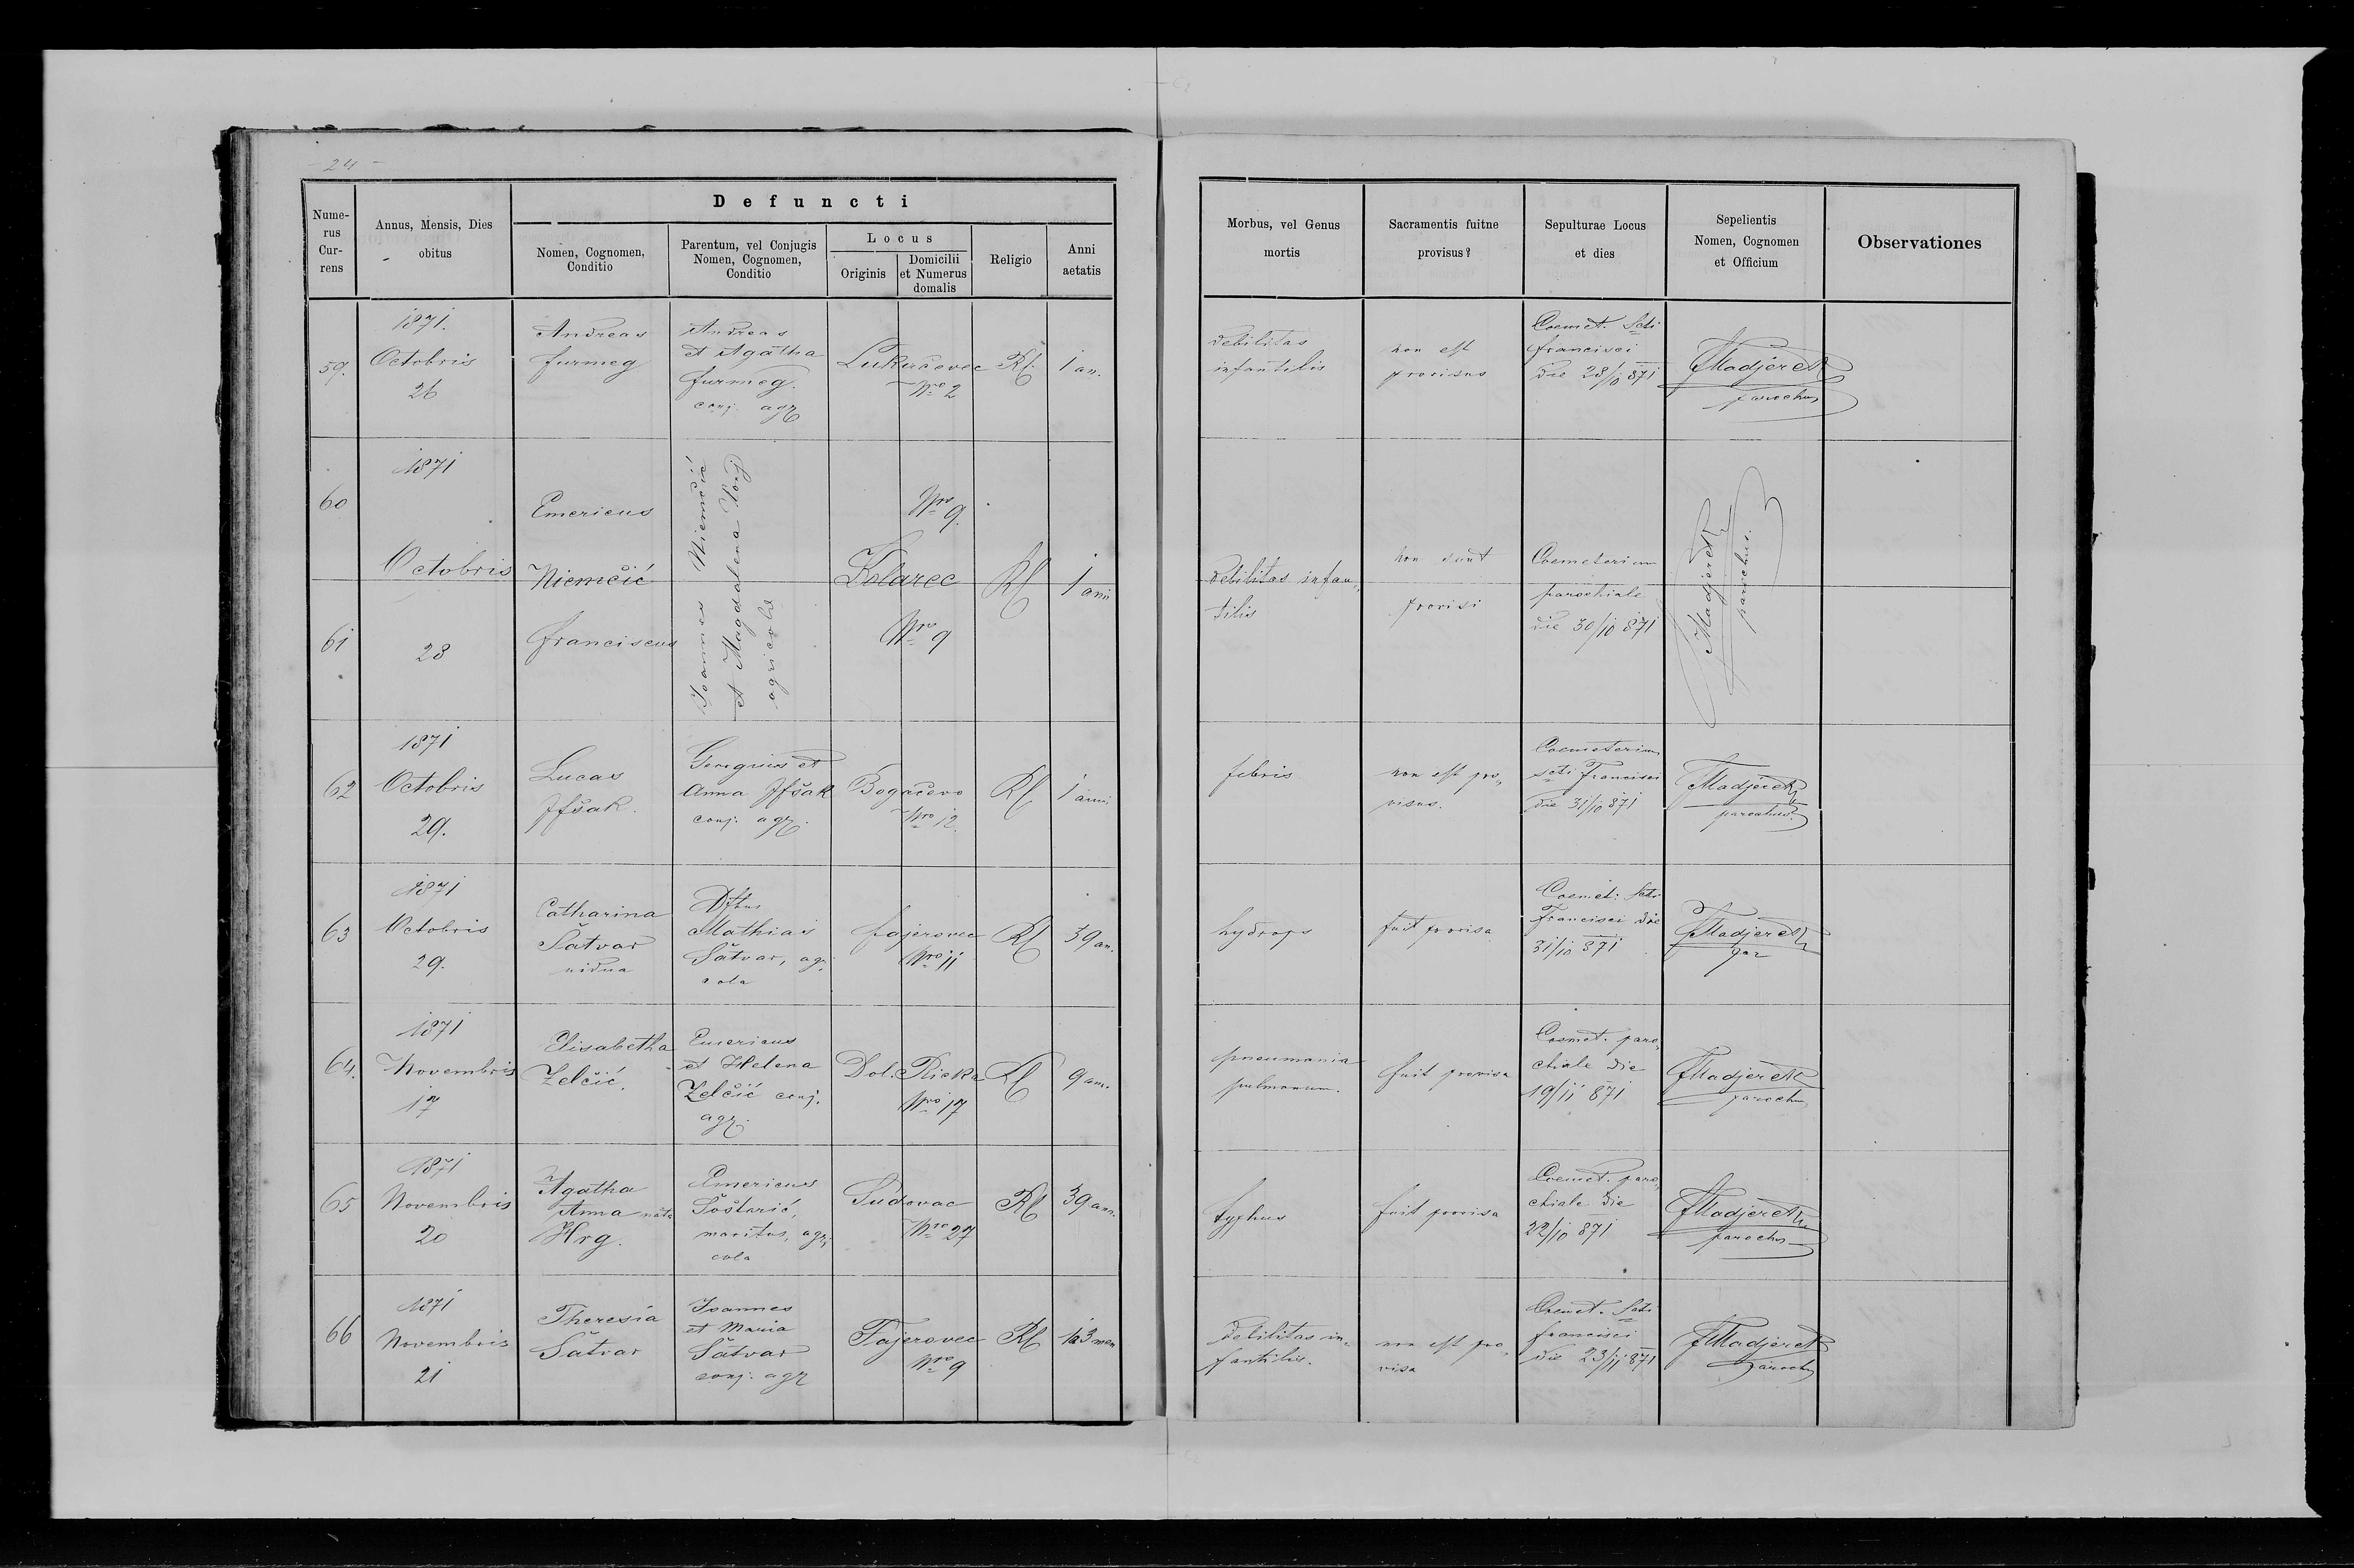 - 24 -
Defuncti
Nume-
rus
Cur-
rens
Annus, Mensis, Dies
obitus
Nomen, Cognomen,
Conditio
Parentum, vel Conjugis
Nomen, Cognomen,
Conditio
Locus
Originis
Domicilii
et Numerus
domalis
Religio
Anni
aetatis
Morbus, vel Genus
mortis
Sacramentis fuitne
provisus?
Sepulturae Locus
et dies
Sepelientis
Nomen, Cognomen
et Officium
Observationes
59.
1871.
Octobris
26
Andreas
furmeg
Andreas
et Agatha
furmeg.
conj. agr
Lukačovec
Nro 2
Rf.
1 an.
debilitas
infantilis
non est
provisus
Coemet. Scti
francisci
die 28/10 871
FMadjerek
parochus
60
61
1871
Octobris
28
Emericus
Niemčić
franciscus
Joannes Niemčić
et Magdalena Conj
agricolae
Nro 9.
Kolarec
Nro 9
Rf
1 anni
debilitas infan„
tilis
non sunt
provisi
Coemeterium
parochiale
die 30/10 871
FMadjerek
parochus.
62
1871
Octobris
29.
Lucas
Jfšak.
Georgius et
Anna Jfšak
conj. agr.
Bogačevo
Nro 12.
Rf
1 anni
febris
non est pro„
visus.
Coemeterium
scti Francisci
die 31/10 871
FMadjerek
parochus
63
1871
Octobris
29.
Catharina
Šatvar
vidua
Dftus
Mathias
Šatvar, agr.
cola
fajerovec
Nro 11
Rf
39 an.
hydrops
fuit provisa
Coemet. Scti
Francisci die
31/10 871
FMadjerek
par
64.
1871
Novembris
17
Elisabetha
Zelčić.
Emericus
et Helena
Zelčić conj.
agr.
Dol. Rieka
Nro 17
Rf
9 an.
pneumonia
pulmonum.
fuit provisa
Coemet. paro„
chiale die
19/11 871
FMadjerek
parochus
65
1871
Novembris
20
Agatha
Anna nata
Hrg.
Emericus
Šoštarić,
maritus, agri
cola
Sudovac
Nro 27
Rf
39 an.
typhus
fuit provisa
Coemet. paro„
chiale die
22/10 871
FMadjerek
parochus
66
1871
Novembris
21
Theresia
Šatvar
Joannes
et Maria
Šatvar
conj. agr
Fajerovec
Nro 9
Rf
3 men
debilitas in„
fantilis.
non est pro„
visa
Coemet. Scti
francisci
die 23/11 871
FMadjerek
parochus